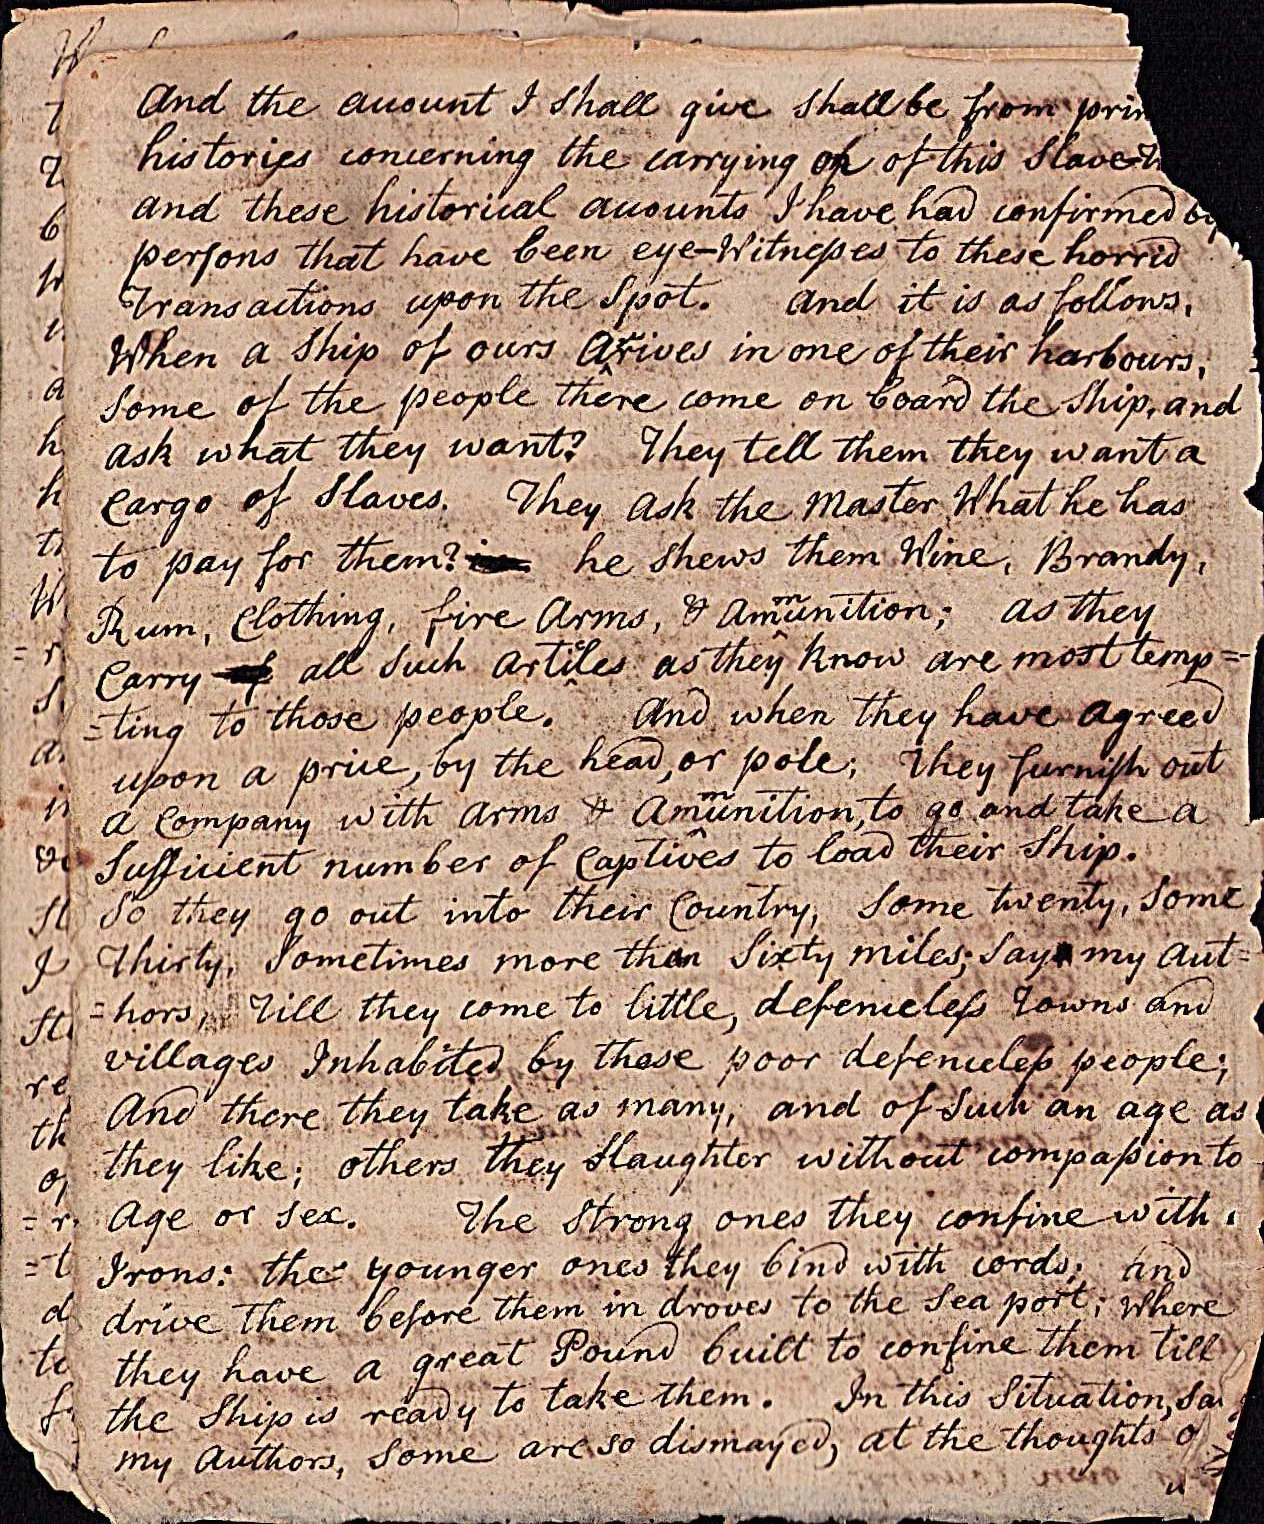 And the acuount I shall give shall be from prin
histories concerning the carrying on of this Slave-
and these historical acuounts I have had confirmed by
persons that have been eye-Witnesses to these horrid
Transactions upon the Spot. And it is as follows.
When a Ship of ours Arrives in one of their harbours,
Some of the people there come on board the Ship, and
ask what they want? They tell them they want a
Cargo of Slaves. They Ask the Master What he has
to pay for them? he shews them Wine, Brandy,
Rum, Clothing, fire Arms, & Ammunition; as they
Carry all Such Articles as they know are most temp=
=ting to those people. And when they have Agreed
upon a price, by the head, or pole; They furnish out
a Company with Arms & Ammunition, to go and take a
Sufficient number of Captives to load their Ship.
So they go out into their Country, Some twenty, Some
Thirty, Sometimes more than Sixty miles; Say my Aut=
=hors, Till they come to little, defenceless Towns and
villages Inhabited by these poor defenceless people;
And there they take as many, and of Such an age as
they like; others they Slaughter without compassion to
Age or Sex. The Strong ones they confine with
Irons: the younger ones they bind with cords; And
drive them before them in droves to the Sea port; Where
they have a great Pound built to confine them till
the Ship is ready to take them. In this Situation, Sa
my Authors, Some are so dismayed, at the thoughts o